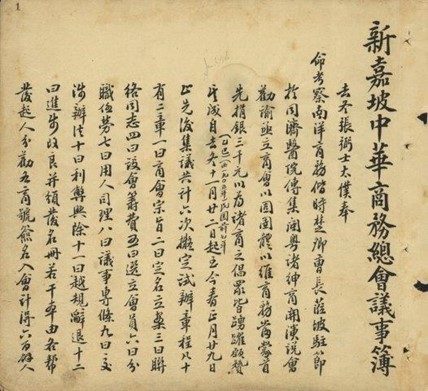 1
新嘉坡中華商務總會議事簿
去冬張弼士太僕奉
命考察南洋商務偕時楚卿曹長蒞坡駐節
於同濟醫院傳集閩粵諸紳商開演說會
勸諭亟立商會以固團體以維商務並首
先捐銀三千元以為諸商之倡眾皆踴躍
成自去冬十一月廿二日起至今春正月廿九日
止先後集議共計六次擬定試辦章程八十
有二章一曰商會宗旨二曰定名立案三曰聯
絡同志四曰設會籌費五曰選立會員六曰分
職任勞七曰用人司理八曰議事專條九曰交
涉辦法十曰利弊興除十一曰越規辭退十二
曰進步改良並頒發名冊若干本由各幫
發起人分勸各商號簽名入會計得六百餘人